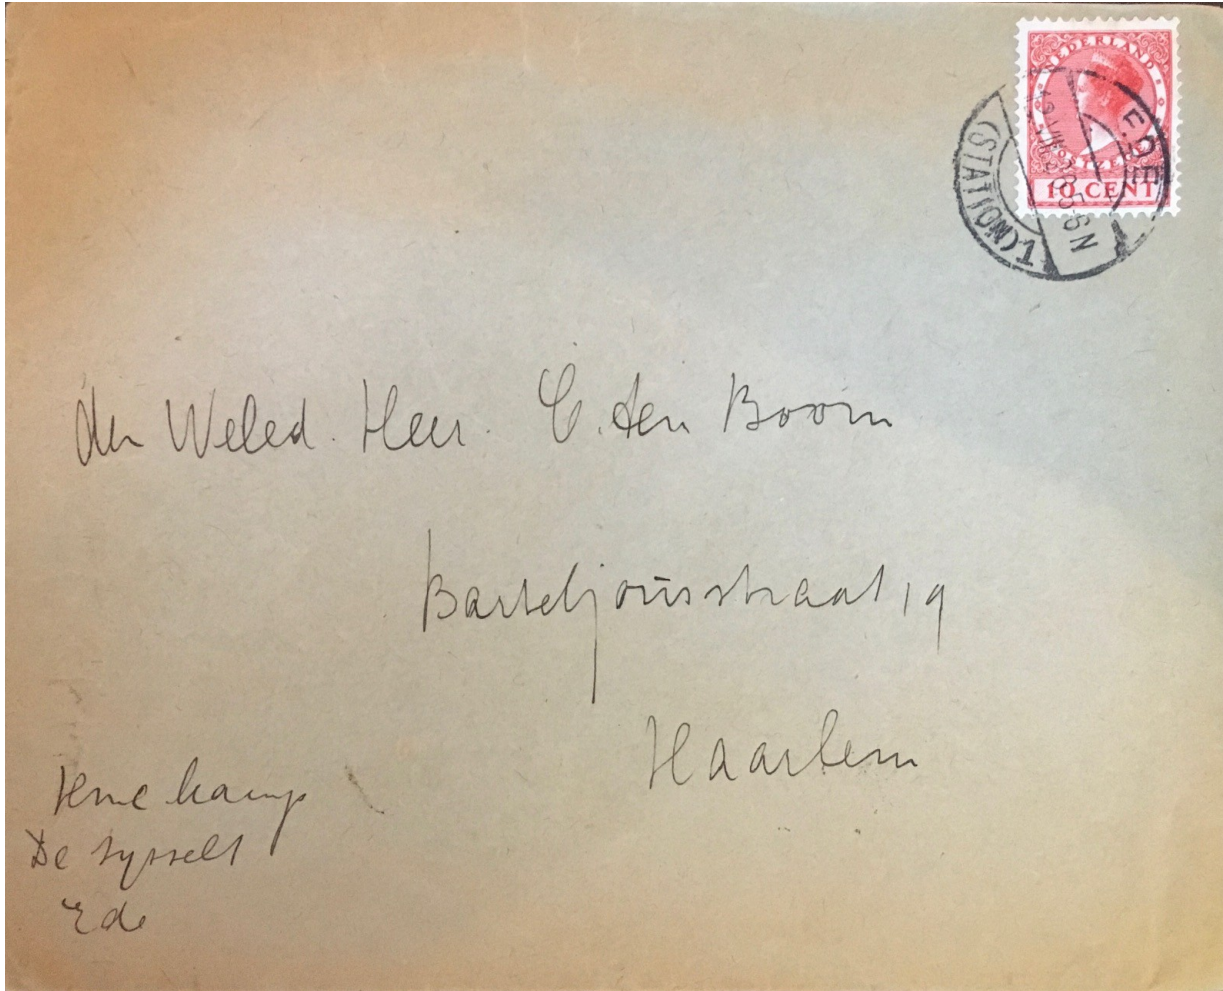 NEDERLAND
POSTZEGEL
10 CENT
EDE
(STATION) 1
5-6 N
den Weled. Heer. C. ten Boom
Barteljorisstraat 19
Haarlem
kamp
De Sysselt
Ede